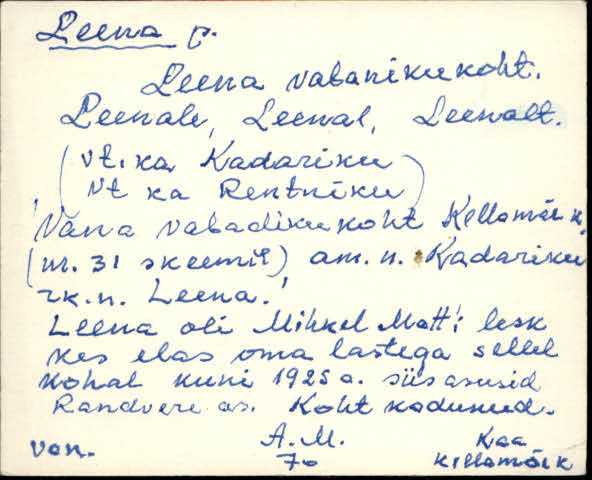 Leena p.
Leena vabanikukoht.
Leenale, Leenal, Leenalt.
(vt. ka Kadariku
vt ka Rentniku)
Vana vabadikukoht Kellamäe k.
(nr. 31 skeemil) am. n. Kadariku
rk. n. Leena.
Leena oli Mihkel Matt'i lesk
kes elas oma lastega sellel
kohal kuni 1925 a. siis asusid
Randvere as. Koht kadunud.
A. M.
70
Kaa